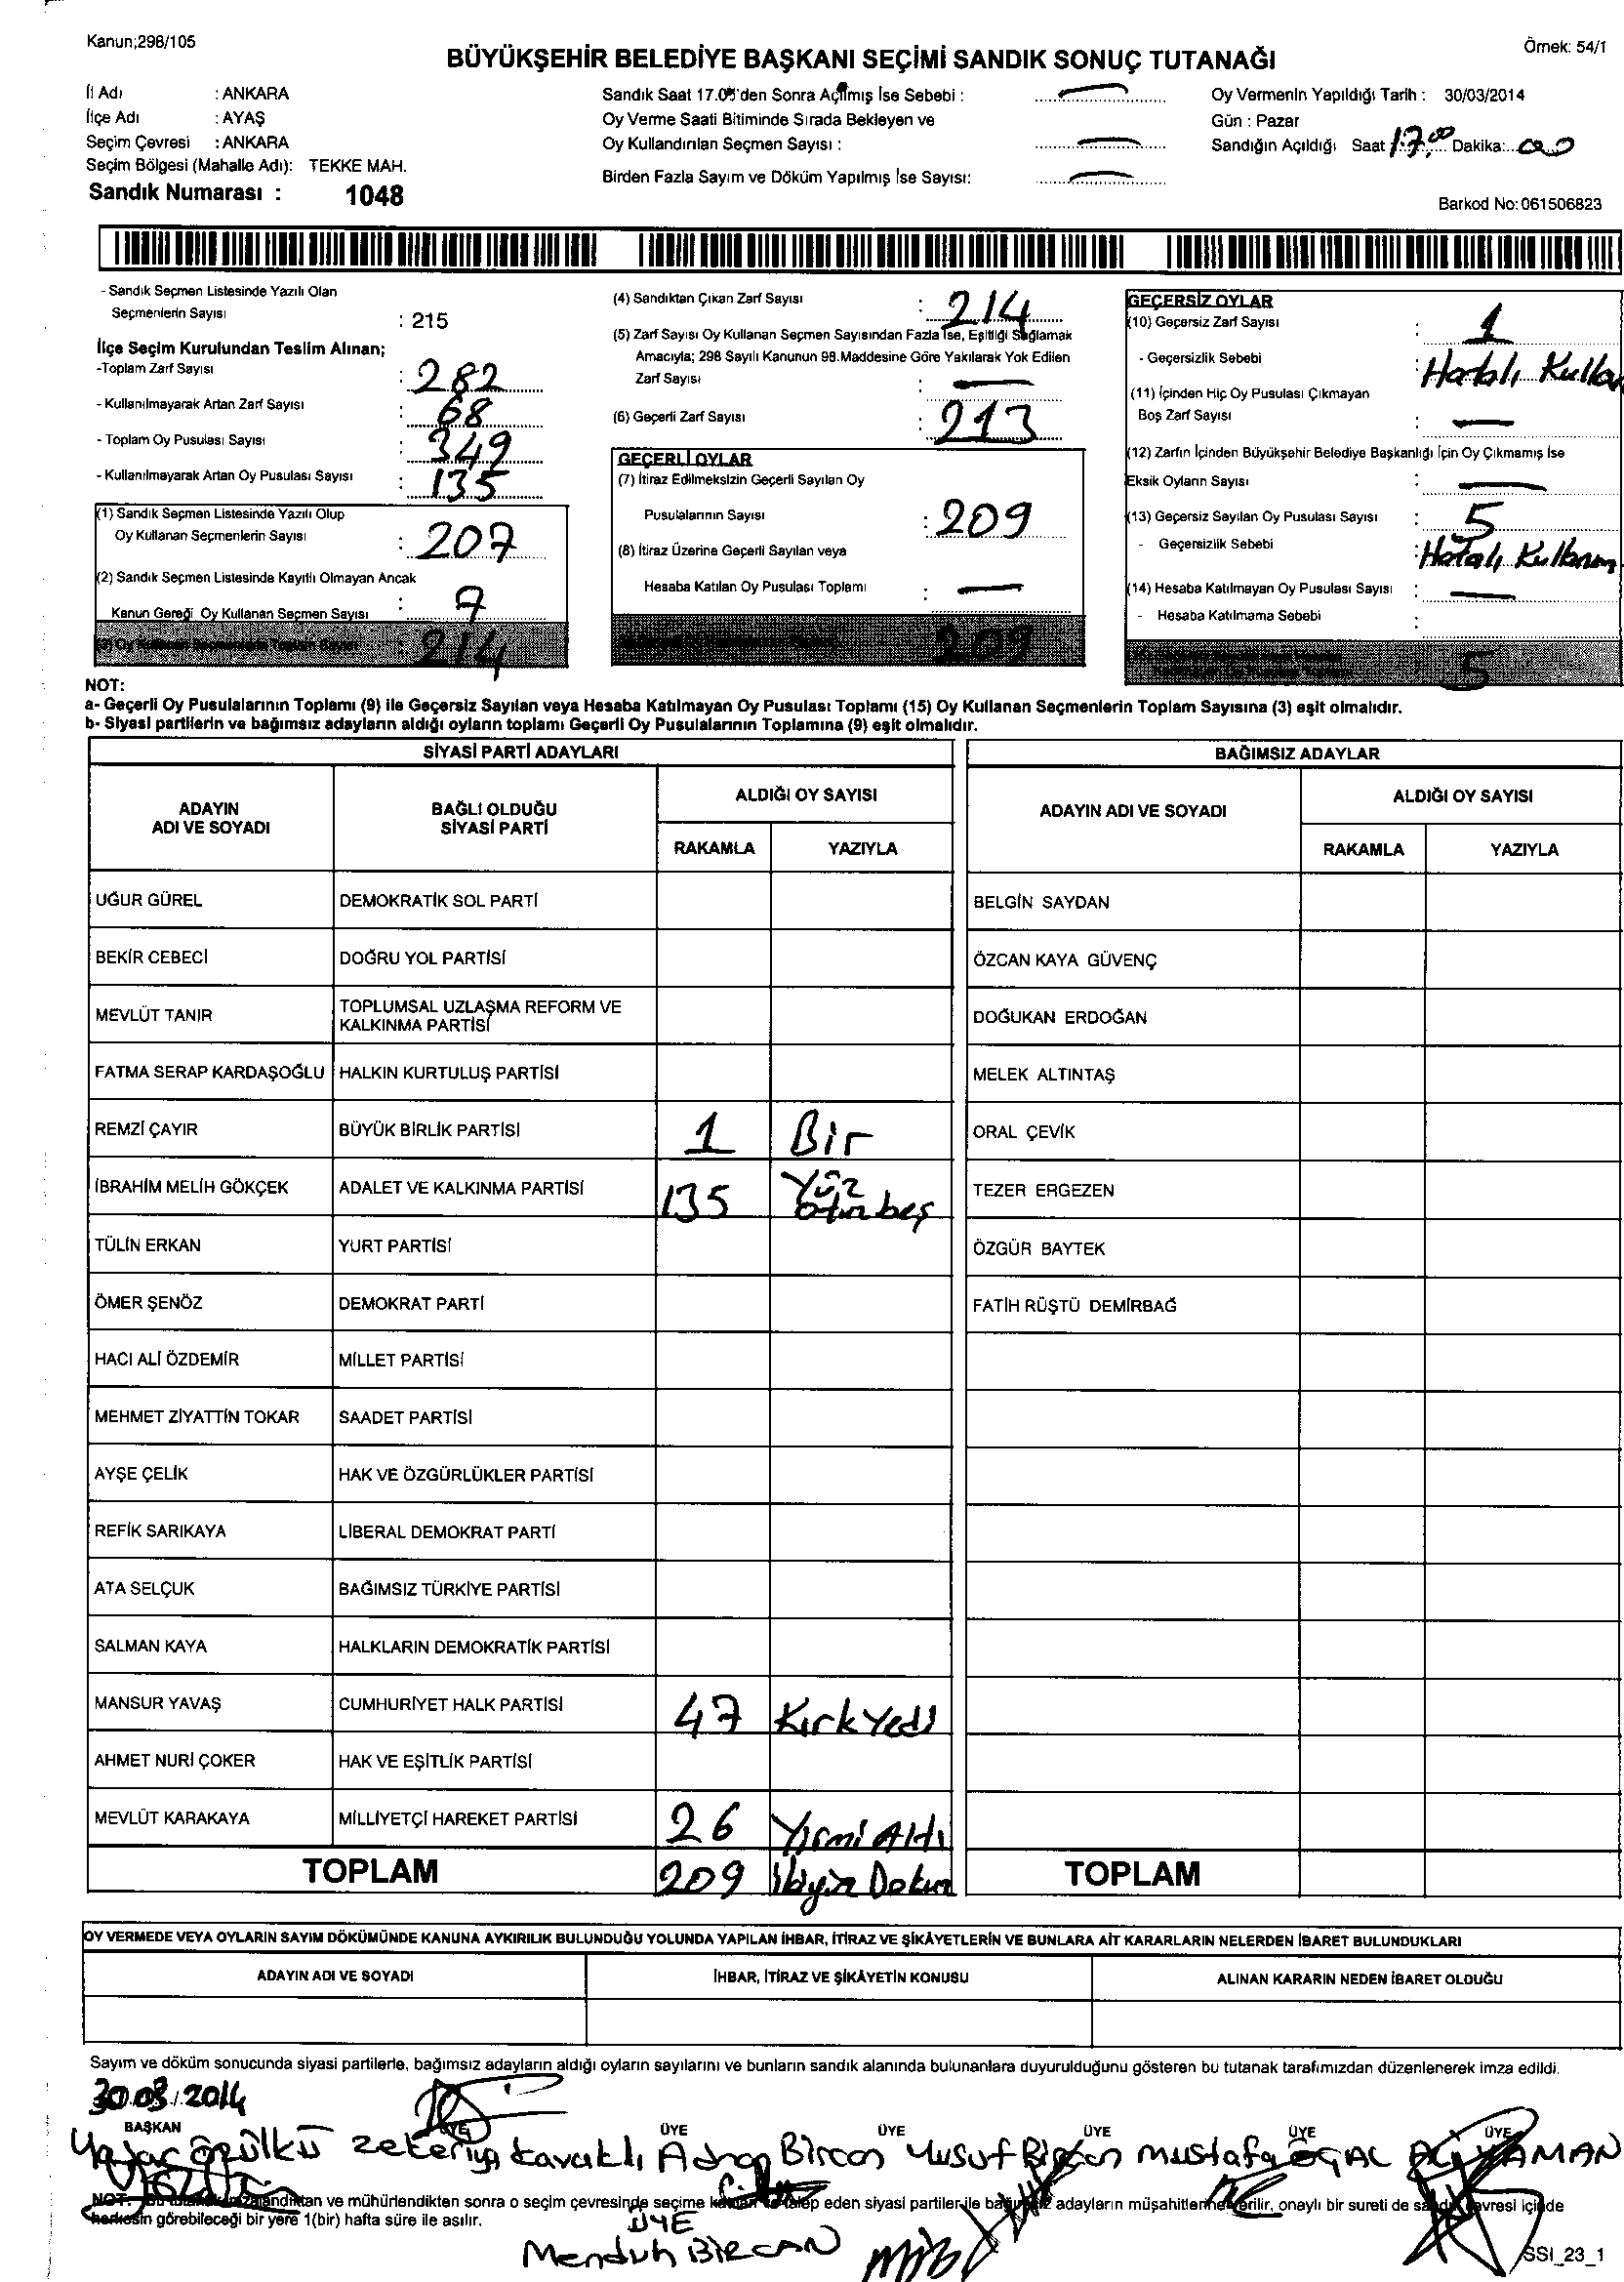 Kanun;298/105
BÜYÜKŞEHİR BELEDİYE BAŞKANI SEÇİMİ SANDIK SONUÇ TUTANAĞI
Örnek: 54/1
İl Adı : ANKARA
İlçe Adı : AYAŞ
Seçim Çevresi : ANKARA
Seçim Bölgesi (Mahalle Adı): TEKKE MAH.
Sandık Numarası : 1048
Sandık Saat 17.00'den Sonra Açılmış İse Sebebi : —
Oy Verme Saati Bitiminde Sırada Bekleyen ve
Oy Kullandırılan Seçmen Sayısı : —
Birden Fazla Sayım ve Döküm Yapılmış İse Sayısı: —
Oy Vermenin Yapıldığı Tarih : 30/03/2014
Gün : Pazar
Sandığın Açıldığı Saat 17.00 Dakika: 00
Barkod No:061506823
- Sandık Seçmen Listesinde Yazılı Olan
Seçmenlerin Sayısı : 215
İlçe Seçim Kurulundan Teslim Alınan;
-Toplam Zarf Sayısı : 282
- Kullanılmayarak Artan Zarf Sayısı : 68
- Toplam Oy Pusulası Sayısı : 349
- Kullanılmayarak Artan Oy Pusulası Sayısı : 135
(1) Sandık Seçmen Listesinde Yazılı Olup
Oy Kullanan Seçmenlerin Sayısı : 207
(2) Sandık Seçmen Listesinde Kayıtlı Olmayan Ancak
Kanun Gereği Oy Kullanan Seçmen Sayısı : 7
(3) Oy Kullanan Seçmenlerin Toplam Sayısı : 214
(4) Sandıktan Çıkan Zarf Sayısı : 214
(5) Zarf Sayısı Oy Kullanan Seçmen Sayısından Fazla İse, Eşitliği Sağlamak
Amacıyla; 298 Sayılı Kanunun 98.Maddesine Göre Yakılarak Yok Edilen
Zarf Sayısı : —
(6) Geçerli Zarf Sayısı : 213
GEÇERLİ OYLAR
(7) İtiraz Edilmeksizin Geçerli Sayılan Oy
Pusulalarının Sayısı : 209
(8) İtiraz Üzerine Geçerli Sayılan veya
Hesaba Katılan Oy Pusulası Toplamı : —
209
GEÇERSİZ OYLAR
(10) Geçersiz Zarf Sayısı : 1
- Geçersizlik Sebebi : Hatalı
(11) İçinden Hiç Oy Pusulası Çıkmayan
Boş Zarf Sayısı : —
(12) Zarfın İçinden Büyükşehir Belediye Başkanlığı İçin Oy Çıkmamış İse
Eksik Oyların Sayısı : —
(13) Geçersiz Sayılan Oy Pusulası Sayısı : 5
- Geçersizlik Sebebi : Hatalı Kullanım
(14) Hesaba Katılmayan Oy Pusulası Sayısı : —
- Hesaba Katılmama Sebebi :
5
NOT:
a- Geçerli Oy Pusulalarının Toplamı (9) ile Geçersiz Sayılan veya Hesaba Katılmayan Oy Pusulası Toplamı (15) Oy Kullanan Seçmenlerin Toplam Sayısına (3) eşit olmalıdır.
b- Siyasi partilerin ve bağımsız adayların aldığı oyların toplamı Geçerli Oy Pusulalarının Toplamına (9) eşit olmalıdır.
SİYASİ PARTİ ADAYLARI
ADAYIN ADI VE SOYADI
BAĞLI OLDUĞU SİYASİ PARTİ
ALDIĞI OY SAYISI
RAKAMLA YAZIYLA
UĞUR GÜREL DEMOKRATİK SOL PARTİ
BEKİR CEBECİ DOĞRU YOL PARTİSİ
MEVLÜT TANIR TOPLUMSAL UZLAŞMA REFORM VE
KALKINMA PARTİSİ
FATMA SERAP KARDAŞOĞLU HALKIN KURTULUŞ PARTİSİ
REMZİ ÇAYIR BÜYÜK BİRLİK PARTİSİ 1 Bir
İBRAHİM MELİH GÖKÇEK ADALET VE KALKINMA PARTİSİ 135 Yüz otuzbeş
TÜLİN ERKAN YURT PARTİSİ
ÖMER ŞENÖZ DEMOKRAT PARTİ
HACI ALİ ÖZDEMİR MİLLET PARTİSİ
MEHMET ZİYATTİN TOKAR SAADET PARTİSİ
AYŞE ÇELİK HAK VE ÖZGÜRLÜKLER PARTİSİ
REFİK SARIKAYA LİBERAL DEMOKRAT PARTİ
ATA SELÇUK BAĞIMSIZ TÜRKİYE PARTİSİ
SALMAN KAYA HALKLARIN DEMOKRATİK PARTİSİ
MANSUR YAVAŞ CUMHURİYET HALK PARTİSİ 47 Kırk Yedi
AHMET NURİ ÇOKER HAK VE EŞİTLİK PARTİSİ
MEVLÜT KARAKAYA MİLLİYETÇİ HAREKET PARTİSİ 26 Yirmi Altı
TOPLAM 209 İkiyüz Dokuz
BAĞIMSIZ ADAYLAR
ADAYIN ADI VE SOYADI
ALDIĞI OY SAYISI
RAKAMLA YAZIYLA
BELGİN SAYDAN
ÖZCAN KAYA GÜVENÇ
DOĞUKAN ERDOĞAN
MELEK ALTINTAŞ
ORAL ÇEVİK
TEZER ERGEZEN
ÖZGÜR BAYTEK
FATİH RÜŞTÜ DEMİRBAĞ
TOPLAM
OY VERMEDE VEYA OYLARIN SAYIM DÖKÜMÜNDE KANUNA AYKIRILIK BULUNDUĞU YOLUNDA YAPILAN İHBAR, İTİRAZ VE ŞİKÂYETLERİN VE BUNLARA AİT KARARLARIN NELERDEN İBARET BULUNDUKLARI
ADAYIN ADI VE SOYADI İHBAR, İTİRAZ VE ŞİKÂYETİN KONUSU ALINAN KARARIN NEDEN İBARET OLDUĞU
Sayım ve döküm sonucunda siyasi partilerle, bağımsız adayların aldığı oyların sayılarını ve bunların sandık alanında bulunanlara duyurulduğunu gösteren bu tutanak tarafımızdan düzenlenerek imza edildi.
30.03.2014
BAŞKAN ÜYE ÜYE ÜYE ÜYE ÜYE ÜYE
Zekeriya Kavaklı Adnan Bircan Yusuf Bircan Mustafa
NOT: Bu tutanak imzalandıktan ve mühürlendikten sonra o seçim çevresinde seçime katılan ve talep eden siyasi partiler ile bağımsız adayların müşahitlerine verilir, onaylı bir sureti de sandık çevresi içinde
herkesin görebileceği bir yere 1(bir) hafta süre ile asılır.
ÜYE
Menduh BİRCAN
SSI_23_1